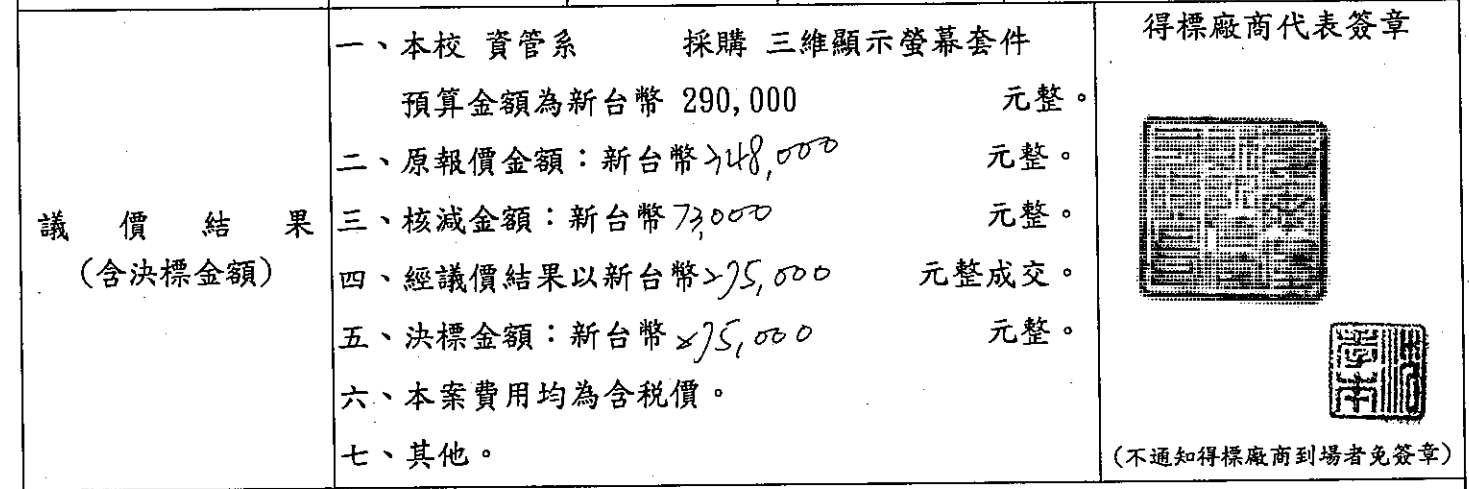 議價結果
(含決標金額)
一、本校 資管系 採購 三維顯示螢幕套件
預算金額為新台幣 290,000 元整。
二、原報價金額：新台幣348,000 元整。
三、核減金額：新台幣73,000 元整。
四、經議價結果以新台幣275,000 元整成交。
五、決標金額：新台幣275,000 元整。
六、本案費用均為含稅價。
七、其他。
得標廠商代表簽章
(不通知得標廠商到場者免簽章)